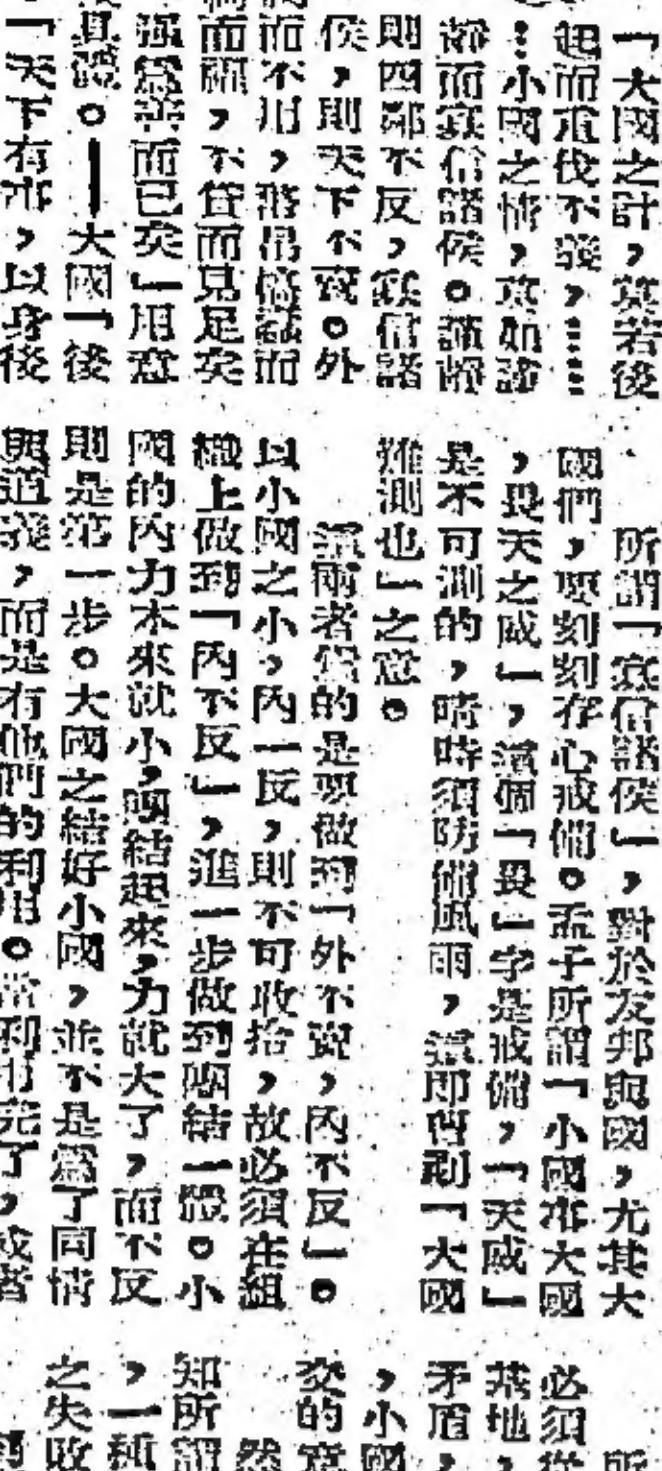 「大國之計,莫若後
起而重伐不義,……
…小國之情,莫如謹
靜而寡信諸侯。謹靜
則四鄰不反,寡信諸
侯,則天下不賣。外
而不用,
而不
强爲善而已矣」用意
。——大國「後
「天下有市,以身後
所謂「寡信諸侯」,對於友邦與國,尤其大
國們,要刻刻存心戒備。孟子所謂「小國事大國
,畏天之威」,這個「畏」字是戒備,「天威」
是不可測的,晴時須防備風雨,這即曹劌「大國
難測也」之意。
這兩者爲的是要做到「外不賣,內不反」。
以小國之小,內一反,則不可收拾,故必須在組
織上做到「內不反」,進一步做到團結一體。小
國的內力本來就小,團結起來,力就大了,而不反
則是第一步。大國之結好小國,並不是爲了同情
與道義,而是有他們的利用。當利用完了,或者
所
必須從
某地,
矛盾,
,小國
交的意
然
知所謂
,一種
之失敗